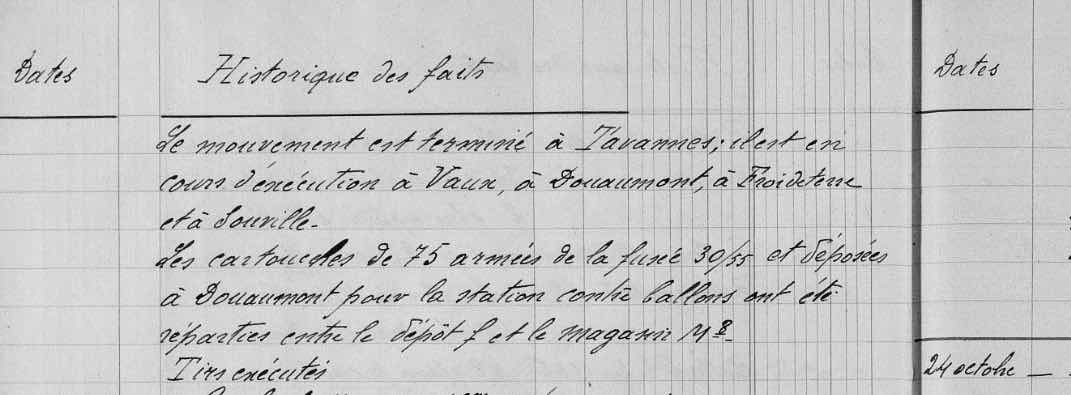 Dates
Historique des faits
Dates
Le mouvement est terminé à Tavannes; il est en
cours d'exécution à Vaux, à Douaumont, à Froideterre
et à Souville.
Les cartouches de 75 armées de la fusée 30/55 et déposées
à Douaumont pour la station contre ballons ont été
réparties entre le dépôt f et le magasin M
Tirs exécutés
24 octobre —